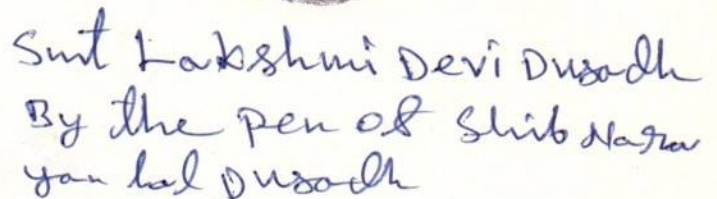 Smt Lakshmi Devi Dusadh
By the pen of Shib Nara
yan Lal Dusadh